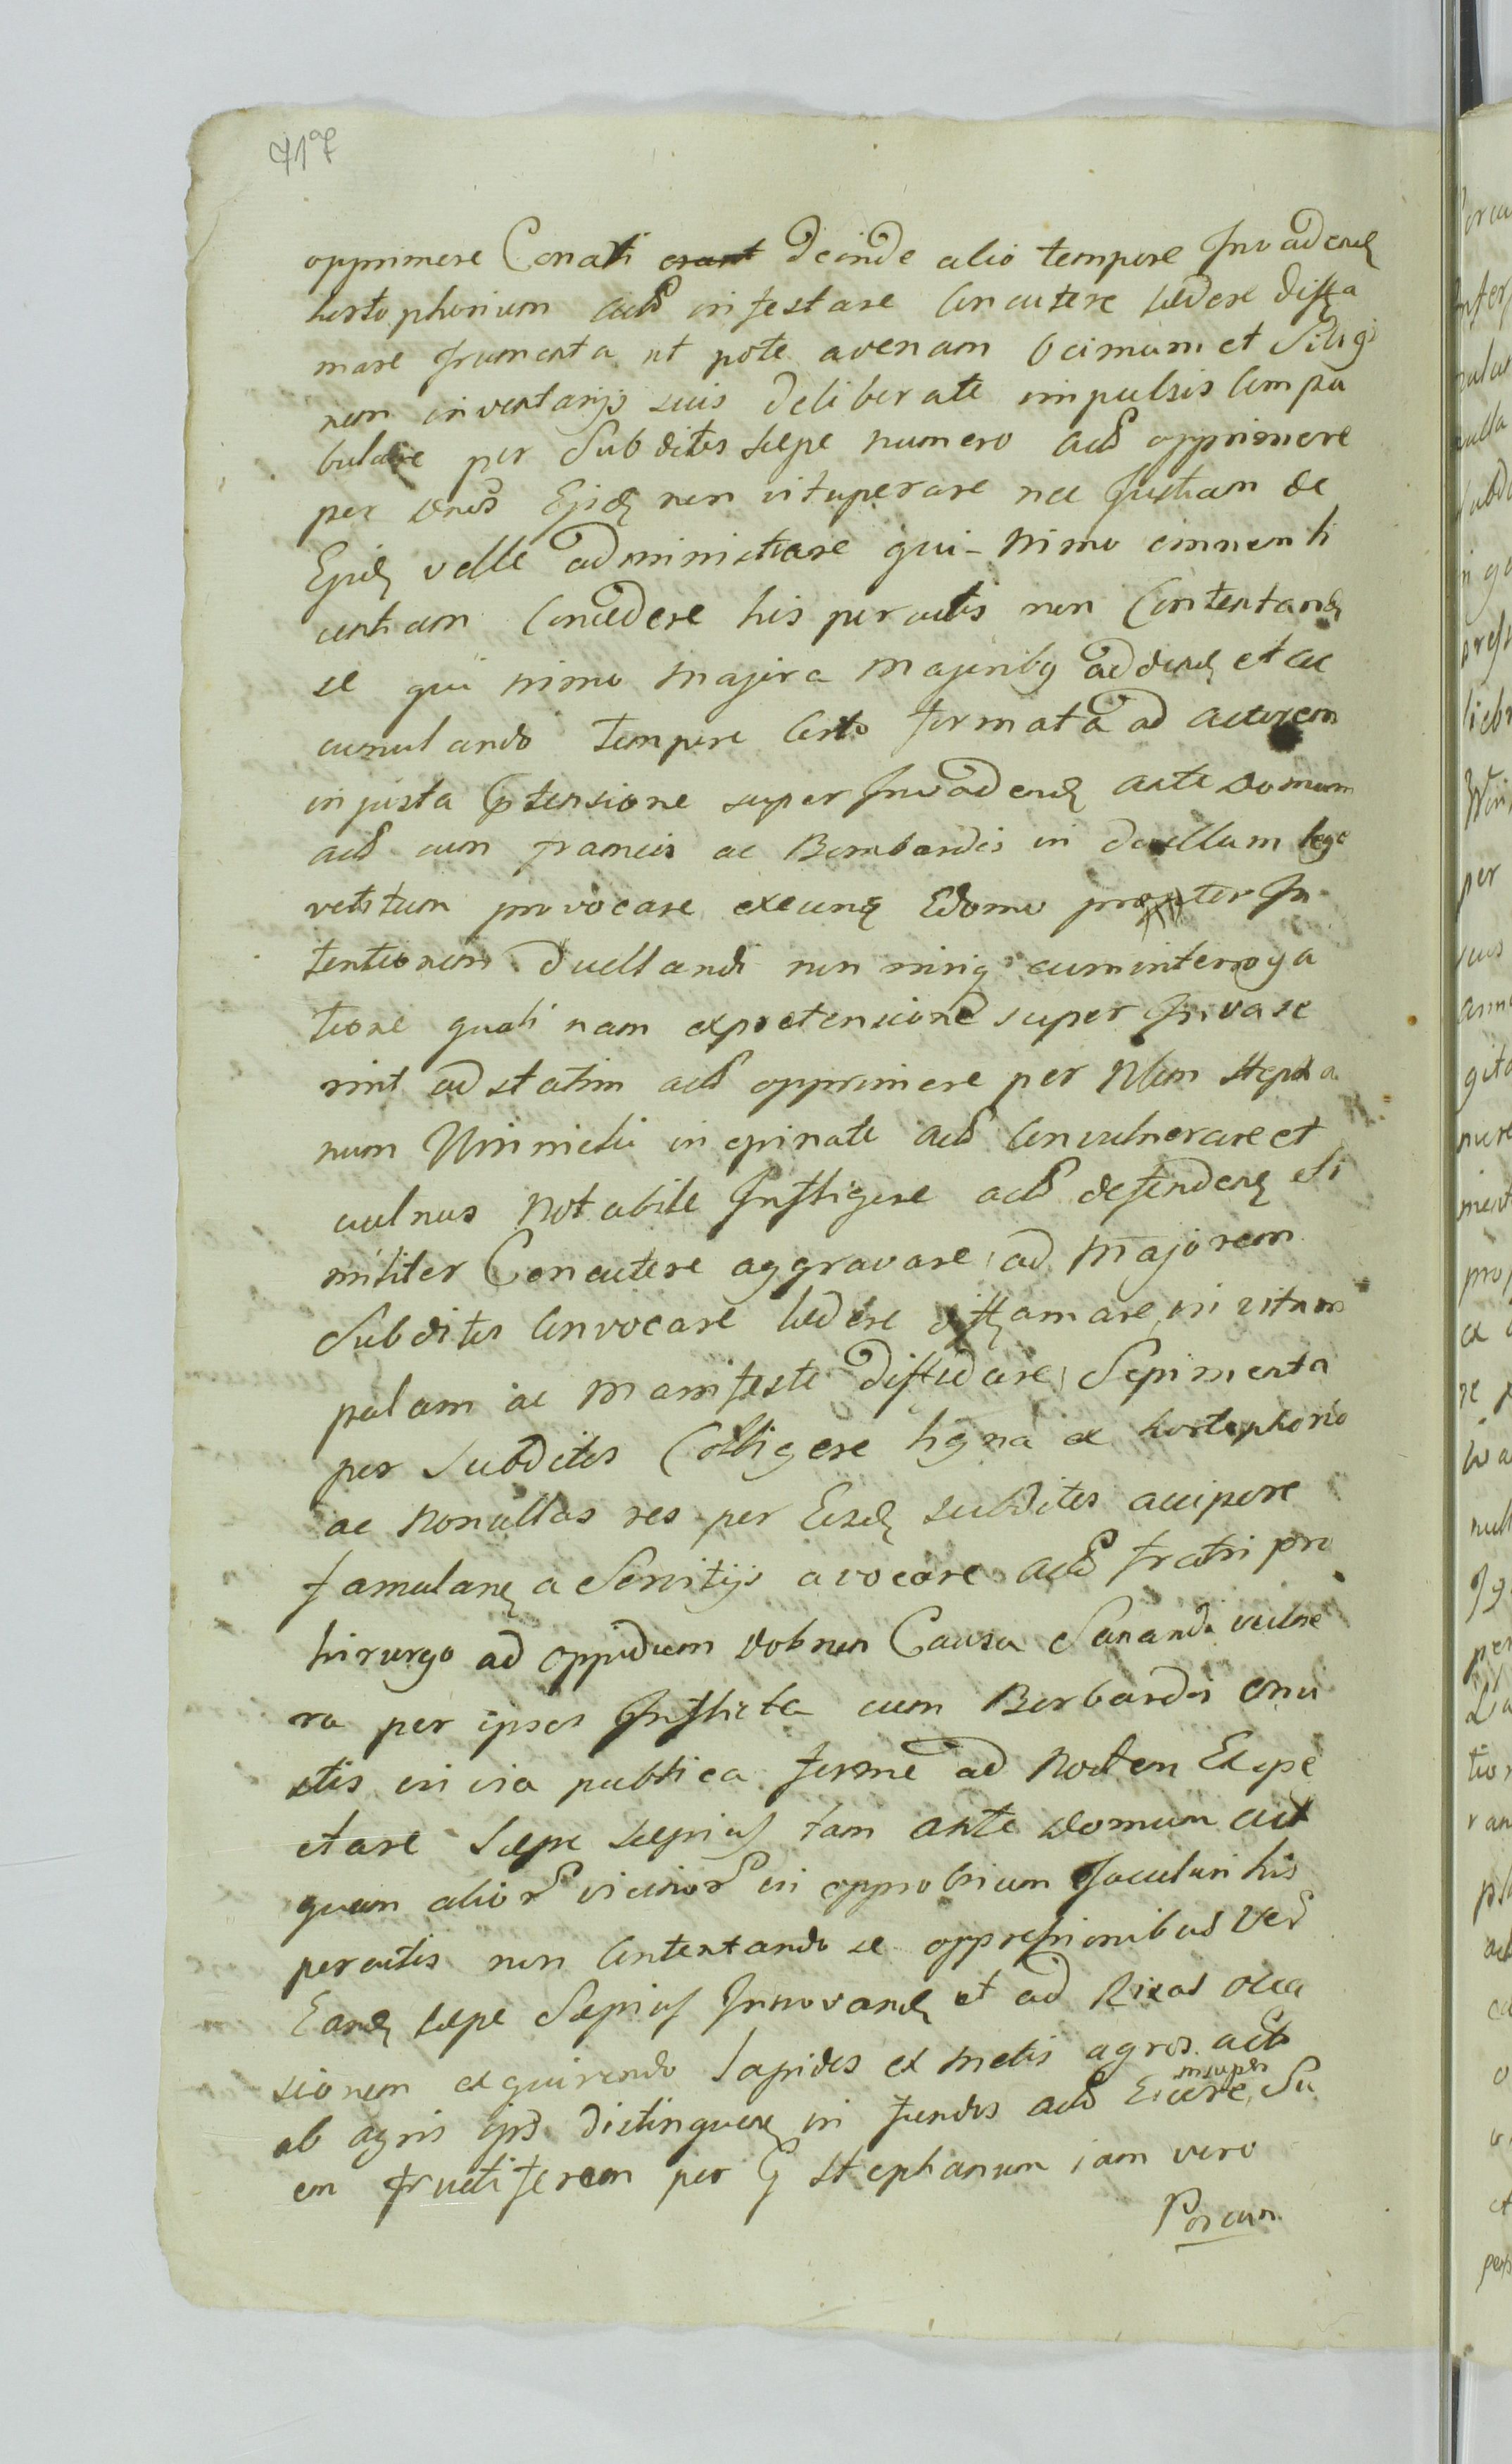 opprimere Conati erant deinde alio tempore Invadend
hortophorium act infestare Concutere ledere diffa
mare frumenta ut pote avenam Ocimum et Silig
nem inventarijs suis deliberate impulsis Compa
bulare per Subditos sepe numero act opprimere
per Ejsd non vituperare nec Justiam de
Ejsd velle administrare qui-nimo
Concedere his peractis non Contentand
se qui nimo majora majoribq addend et ac
cumulando tempore Certo formata ad actorem
injusta Ptensione super Invadend acte domum
act cum frameis ac Bombardis in duellum lege
vetitum provocare exeunq Edomo propter In
tentionem duellandi non minq cum interroga
tione quali nam expretensione super Invase
rint ad statim act opprimere per Nlem Stepha
num Winnicki in opinate act Convulnerare et
vulnus Notabile Infligere act defendend si
militer Concutere aggravare ad majorem
Subditos Convocare ledere diffamare in vitam
palam ac manifeste diffidare Sepimenta
per Subditos Colligere ligna ex hortophorio
ac Nonullas res per Eosd subditos accipere
famulanq a Servitijs avocare act fratri pro
hirurgo ad oppidum Dobnen Causa Sanandi vulne
ra per ipsos Inflicta cum Borbardis onu
stis in via publica ferme ad Noctem Expe
ctare Sepe sepius tam ante domum act
quam alior vicinor in opprobrium Jaculari his
peractis non Contentando se oppressionibus ver
Eand sepe Sepius Innovand et ad Rixas occa
sionem exquirendo lapides ex metis agros act
ab agris ips distinguend in fundis act Eicere, insuper Su
em fructiferam per G Stephanum iam vero
Porcum